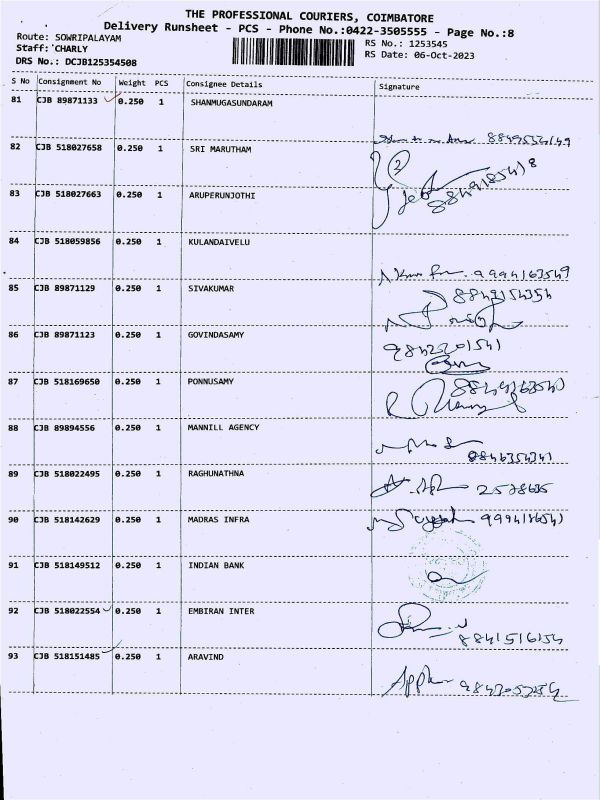 THE PROFESSIONAL COURIERS, COIMBATORE
Delivery Runsheet - PCS - Phone No.:0422-3505555 - Page No.:8
Route: SOWRIPALAYAM
RS No.: 1253545
Staff: CHARLY
RS Date: 06-Oct-2023
DRS No.: DCJB125354508
S No Consignment No Weight PCS Consignee Details Signature
81 CJB 89871133 0.250 1 SHANMUGASUNDARAM
82 CJB 518027658 0.250 1 SRI MARUTHAM
83 CJB 518027663 0.250 1 ARUPERUNJOTHI
84 CJB 518059856 0.250 1 KULANDAIVELU
85 CJB 89871129 0.250 1 SIVAKUMAR
8849154354
86 CJB 89871123 0.250 1 GOVINDASAMY
87 CJB 518169650 0.250 1 PONNUSAMY
88 CJB 89894556 0.250 1 MANNILL AGENCY
8846354341
89 CJB 518022495 0.250 1 RAGHUNATHNA
2578635
90 CJB 518142629 0.250 1 MADRAS INFRA
91 CJB 518149512 0.250 1 INDIAN BANK
92 CJB 518022554 0.250 1 EMBIRAN INTER
8841516154
93 CJB 518151485 0.250 1 ARAVIND